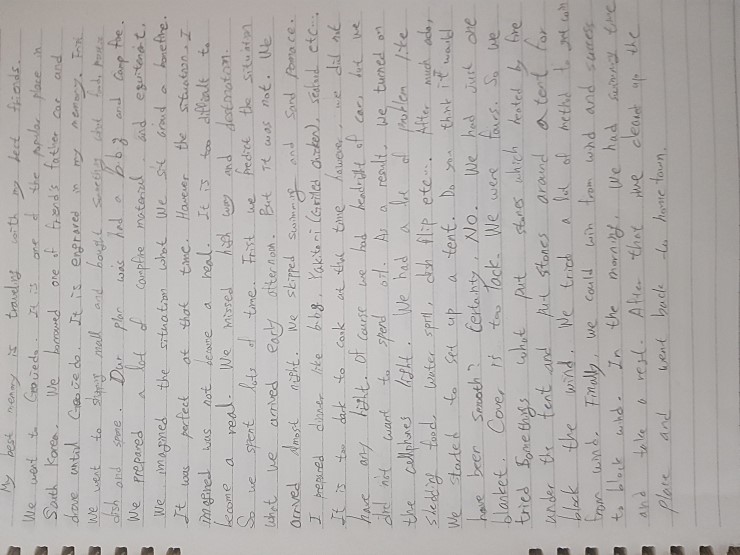 My best memory is traveling with my best friends.
We went to It is one of the popular place in
South Korea. We borrowed one of friend's father car and
drove until It is engraved in my memory. First
We went to mall and bought something
dish and some. Our plan was had a bbq and camp fire.
We prepared a lot of campfire material and equipment.
We imagined the situation what We sit around a bonefire.
It was perfect at that time. However the situation I
imagined was not became a real. It is too difficult to
become a real. We missed high way and destination.
So we spent lots of time. First we predict the situation
what we arrived early afternoon. But it was not. We
arrived almost night. We skipped swimming and sand
I prepared dinner like bbq. Yakitori (Grilled chicken), seafood etc...
It is too dark to cook at that time however, we did not
have any light. Of course we had headlight of car, but we
did not want to spend oil. As a result, we turned on
the cellphones light. We had a lot of problem like
food, water spill, dish flip etc... After much ado,
We started to set up a tent. Do you think it would
have been smooth? Certainly, No. We had just one
blanket. Cover is too lack. We were fours. So we
tried Somethings what put stones which heated by fire
under the tent and put stones around a tent for
block the wind. We tried a lot of method to get win
from wind. Finally, we could win from wind and success
to block wind. In the morning, We had swimming time
and take a rest. After that we cleast up the
place and went back to home town.